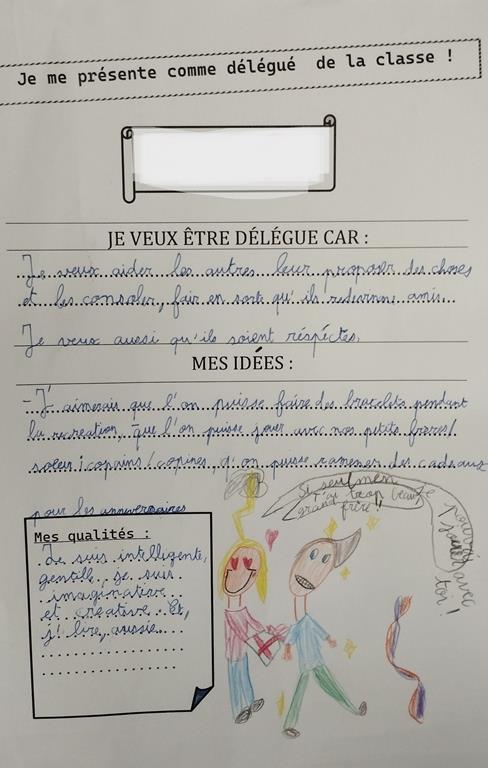 Je me présente comme délégué de la classe !
JE VEUX ÊTRE DÉLÉGUE CAR :
Je veux aider les autres leur proposer des choses
et les consoler, fair en sorte qu'ils redevienne amis.
Je veux aussi qu'ils soient réspéctes.
MES IDÉES :
- J'aimerais que l'on puisse faire des bracelets pendant
la recréation, que l'on puisse jouer avec nos petits frères/
soeurs/copains/copines, q'on puisse ramener des cadeaux
pour les anniversaires
Mes qualités :
Je suis intelligente,
gentille, je suis
imaginative
et creative. Et,
j'
aussie
Si seulmen je
t'es trop beau
grand frère !!
pouvais
jouer avec
toi !